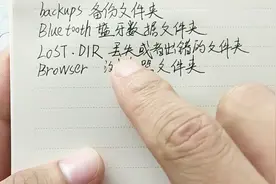 backups 备份文件夹
Bluetooth 蓝牙数据文件夹
LOST.DIR 丢失或者出错的文件夹
Browser 文件夹